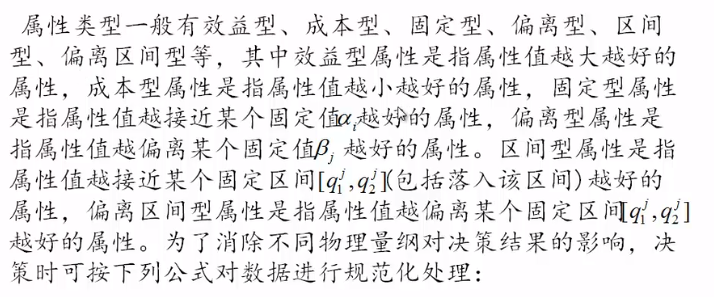 属性类型一般有效益型、成本型、固定型、偏离型、区间
型、偏离区间型等，其中效益型属性是指属性值越大越好的
属性，成本型属性是指属性值越小越好的属性，固定型属性
是指属性值越接近某个固定值α_i越好的属性，偏离型属性是
指属性值越偏离某个固定值β_j越好的属性。区间型属性是指
属性值越接近某个固定区间[q_1^j,q_2^j](包括落入该区间)越好的
属性，偏离区间型属性是指属性值越偏离某个固定区间[q_1^j,q_2^j]
越好的属性。为了消除不同物理量纲对决策结果的影响，决
策时可按下列公式对数据进行规范化处理：